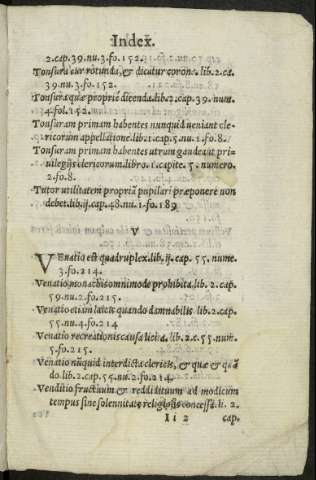 Index̃.
2.cap.39.nu.3.fo.152.
Tonsura cur rotunda, & dicatur corona. lib.2.ca.
39.nu.3.fo.152.
Tonsura quæ propriè dicenda. lib.2.cap.39.num.
4.fol.152.
Tonsuram primam habentes nunquid veniant cle-
ricorum appellatione. lib.1.cap.5.nu.1.fo.8.
Tonsuram primam habentes utrum gaudeant pri-
uilegijs clericorum. libro.1.capite.5.numero.
2.fo.8.
Tutor utilitatem propriã pupilari præponere non
debet. lib.ij.cap.48.nu.1.fo.189
V
VEnatio est quadruplex. lib.ij.cap.55.nume.
3.fo.214.
Venatio monachis omnimode prohibita. lib.2.cap.
59.nu.2.fo.215.
Venatio etiam laicis quando damnabilis lib.2.cap.
55.nu.4.fo.214
Venatio recreationis causa licita. lib.2.c.55.num.
5.fo.215.
Venatio nũquid interdicta clericis, & quæ & quã
do. lib.2.cap.55.nu.2.fo.214.
Venditio fructuum & reddituum ad modicum
tempus sine solennitate religiosis concessa. li.2.
Ii 2 cap.